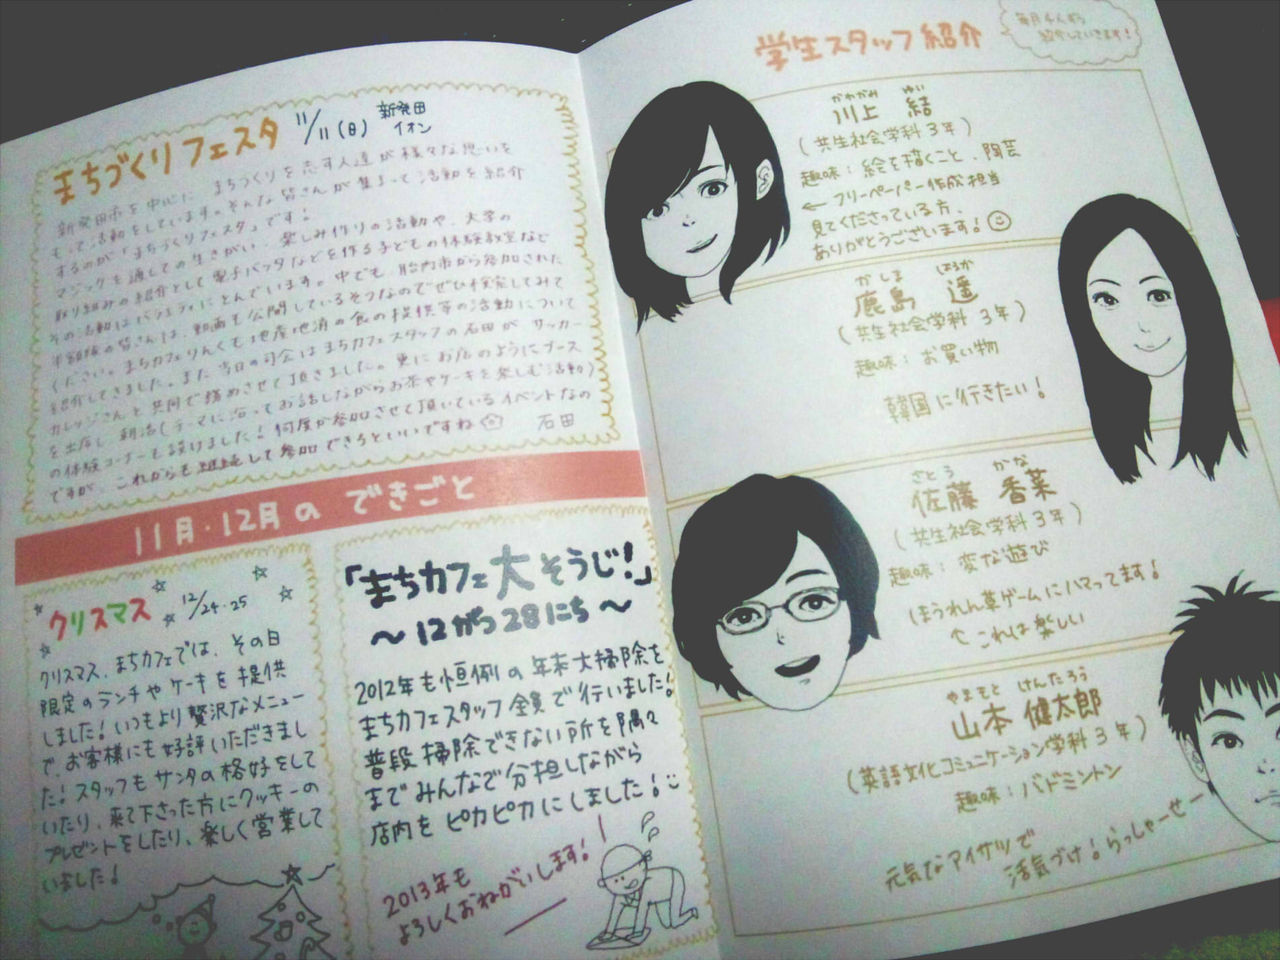 まちづくりフェスタ
11/11(日) 新発田
イオン
新発田市を中心に、まちづくりを志す人達が様々な思いを
もって活動をしています。そんな皆さんが集まって活動を紹介
するのが「まちづくりフェスタ」です!
マジックを通しての生きがい、楽しみ作りの活動や、大学の
取り組みの紹介として電子バッタなどを作る子どもの体験教室など
その活動はバラエティにとんでいます。中でも、胎内市から参加された
の皆さんは、動画も公開しているそうなのでぜひ検索してみて
ください。まちカフェりんくも地産地消の食の提供等の活動について
紹介してきました。また当日の司会はまちカフェスタッフの石田が、サッカー
カレッジさんと共同で務めさせて頂きました。更にお店のようにブース
を出店し、朝活(テーマに沿ってお話しながらお茶やケーキを楽しむ活動)
の体験コーナーも設けました!何度か参加させて頂いているイベントなの
ですが、これからも継続して参加できるといいですね 石田
11月・12月のできごと
クリスマス 12/24・25
クリスマス、まちカフェでは、その日
限定のランチやケーキを提供
しました!いつもより贅沢なメニュー
で、お客様にも好評いただきまし
た!スタッフもサンタの格好をして
いたり、来て下さった方にクッキーの
プレゼントをしたり、楽しく営業して
いました!
「まちカフェ大そうじ!」
〜12がつ28にち〜
2012年も恒例の年末大掃除を
まちカフェスタッフ全員で行いました!
普段掃除できない所を隅々
までみんなで分担しながら
店内をピカピカにしました!
2013年も
よろしくおねがいします!
学生スタッフ紹介
毎月4人ずつ
紹介していきます!
かわかみ ゆい
川上 結
(共生社会学科3年)
趣味:絵を描くこと、陶芸
← フリーペーパー作成担当
見てくださっている方、
ありがとうございます!
かしま はるか
鹿島 遥
(共生社会学科 3年)
趣味:お買い物
韓国に行きたい!
さとう かな
佐藤 香菜
(共生社会学科3年)
趣味:変な遊び
ほうれん草ゲームにハマってます!
↑ これは楽しい
やまもと けんたろう
山本 健太郎
(英語文化コミュニケーション学科3年)
趣味:バドミントン
元気なアイサツで
活気づけ!らっしゃーせー